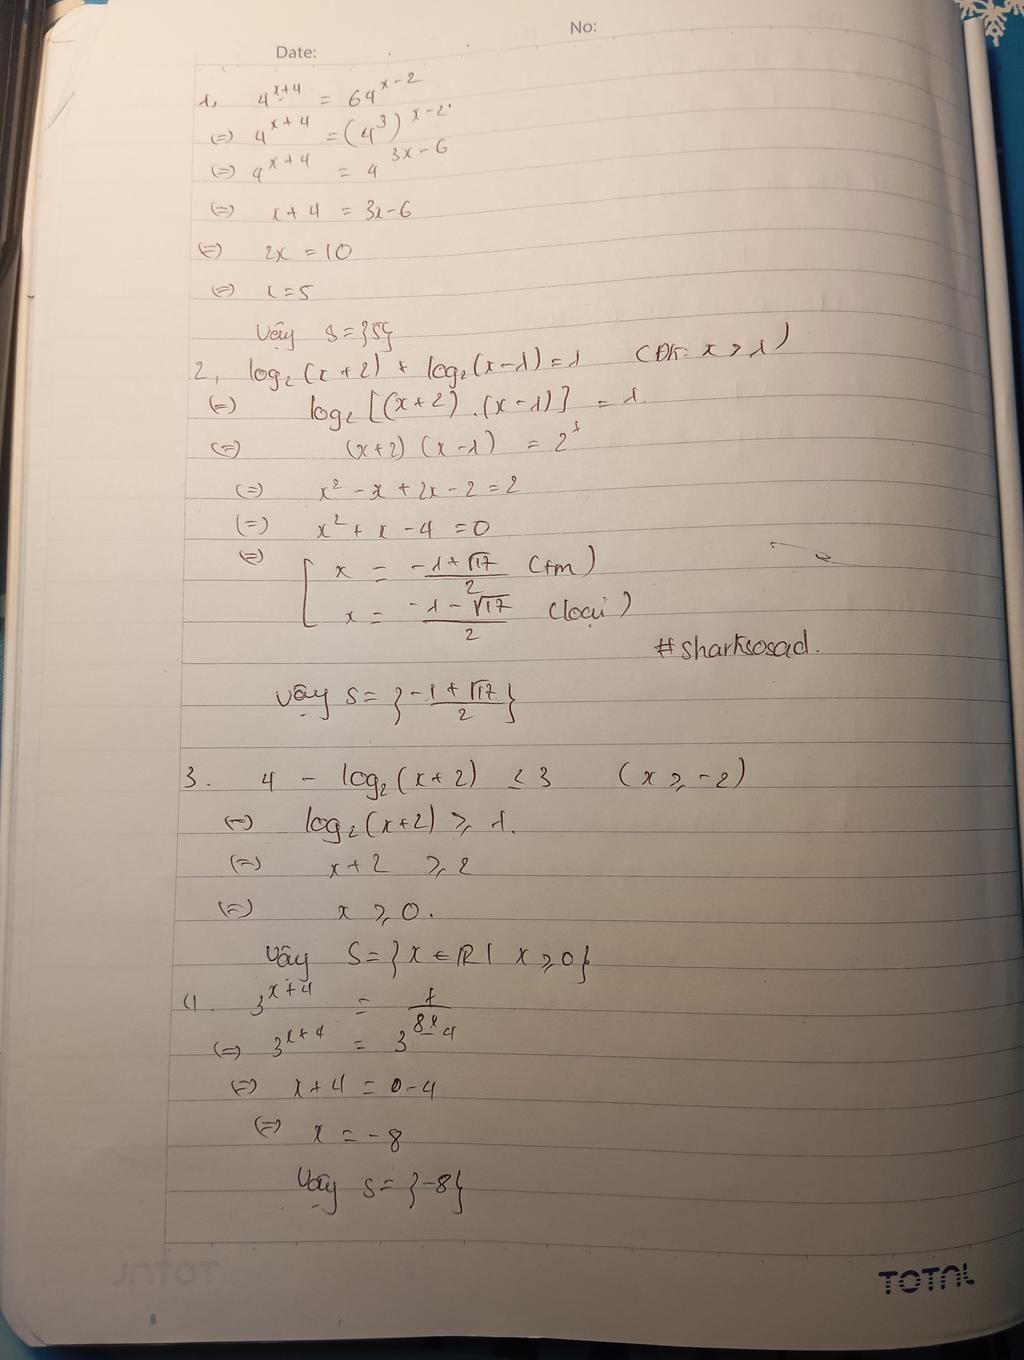 No:
Date:
1, 4^{x+4} = 64^{x-2}
(=) 4^{x+4} = (4^3)^{x-2}
(=) 4^{x+4} = 4^{3x-6}
(=) x+4 = 3x-6
(=) 2x = 10
(=) x=5
Vậy S={5}
2, log₂(x+2) + log₂(x-1)=1 (ĐK: x > 1)
(=) log₂[(x+2).(x-1)] = 1.
(=) (x+2)(x-1) = 2^1
(=) x² - x + 2x - 2 = 2
(=) x² + x - 4 = 0
(=) [ x = (-1+√17)/2 (tm)
x = (-1-√17)/2 (loại)
#sharksosad.
Vậy S={(-1+√17)/2}
3. 4 - log₂(x+2) ≤ 3 (x ≥ -2)
(=) log₂(x+2) ≥ 1.
(=) x+2 ≥ 2
(=) x ≥ 0.
Vậy S={x ∈ R | x ≥ 0}
4. 3^{x+4} = 1/81
(=) 3^{x+4} = 3^{-4}
(=) x+4 = 0-4
(=) x = -8
Vậy S={-8}
TOTAL